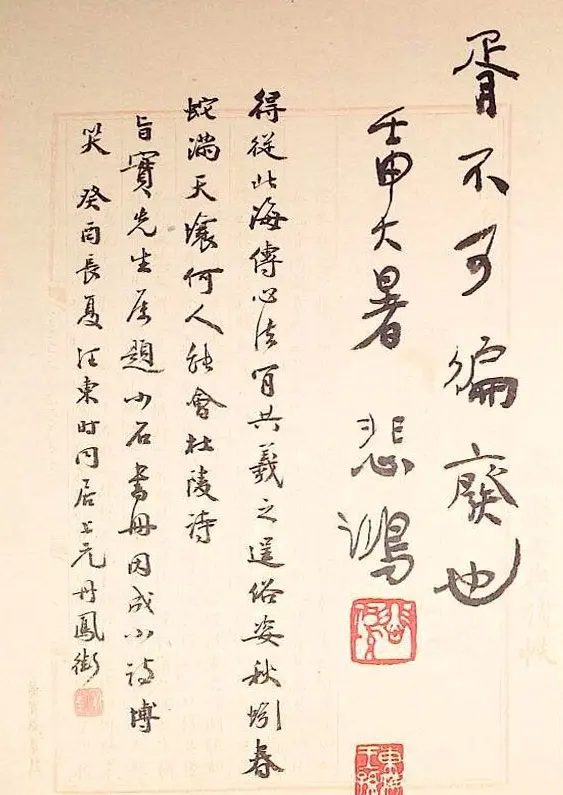 胥不可偏廢也
壬申大暑 悲鴻
得從北海傳心法肯共羲之逞俗姿秋蚓春
蛇滿天壤何人能會杜陵詩
旨寶先生屬題小石書冊因成小詩博
笑 癸酉長夏汪東時同居上元丹鳳街